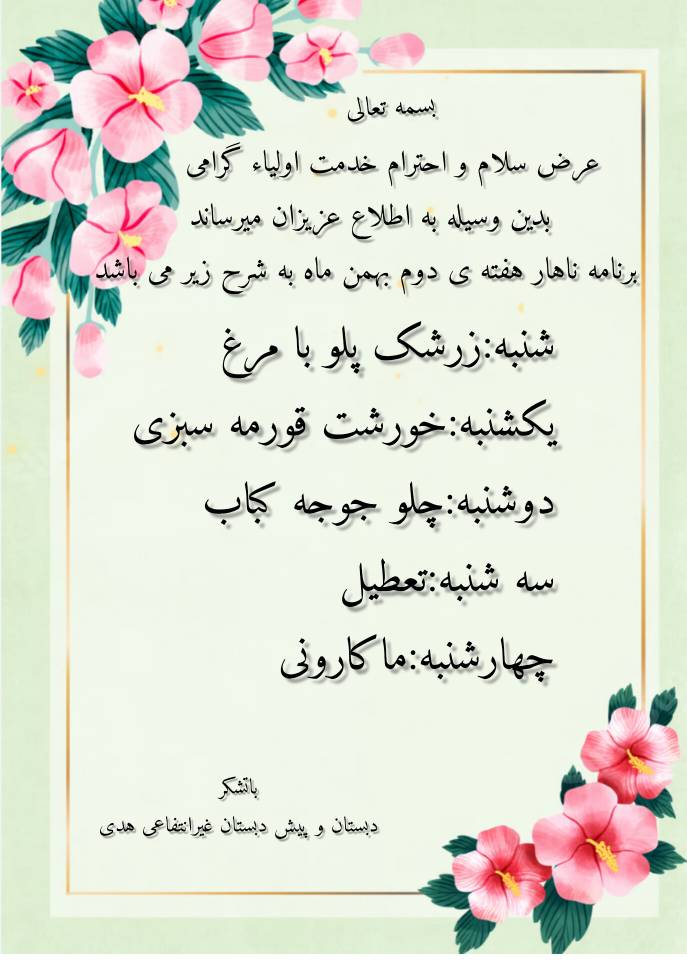 بسمه تعالی
عرض سلام و احترام خدمت اولیاء گرامی
بدین وسیله به اطلاع عزیزان میرساند
برنامه ناهار هفته ی دوم بهمن ماه به شرح زیر می باشد
شنبه:زرشک پلو با مرغ
یکشنبه:خورشت قورمه سبزی
دوشنبه:چلو جوجه کباب
سه شنبه:تعطیل
چهارشنبه:ماکارونی
باتشکر
دبستان و پیش دبستان غیرانتفاعی هدی